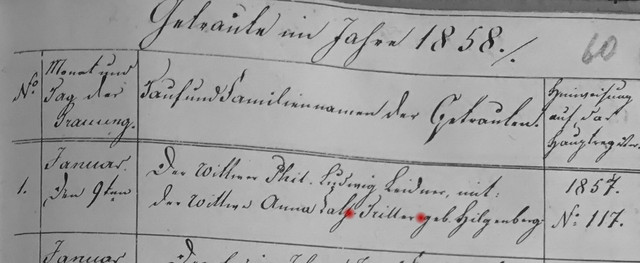 Getraute im Jahre 1858./.
60
No. Monat und Tag der Trauung. Tauf und Familiennamen der Getrauten. Hinweisung auf das Hauptregister.
1. Januar den 9ten Der Wittwer Phil. Ludwig Leidner, mit: 1857.
der Wittwe Anna Kath Tritter geb. Hilgenberg No 117.
Januar